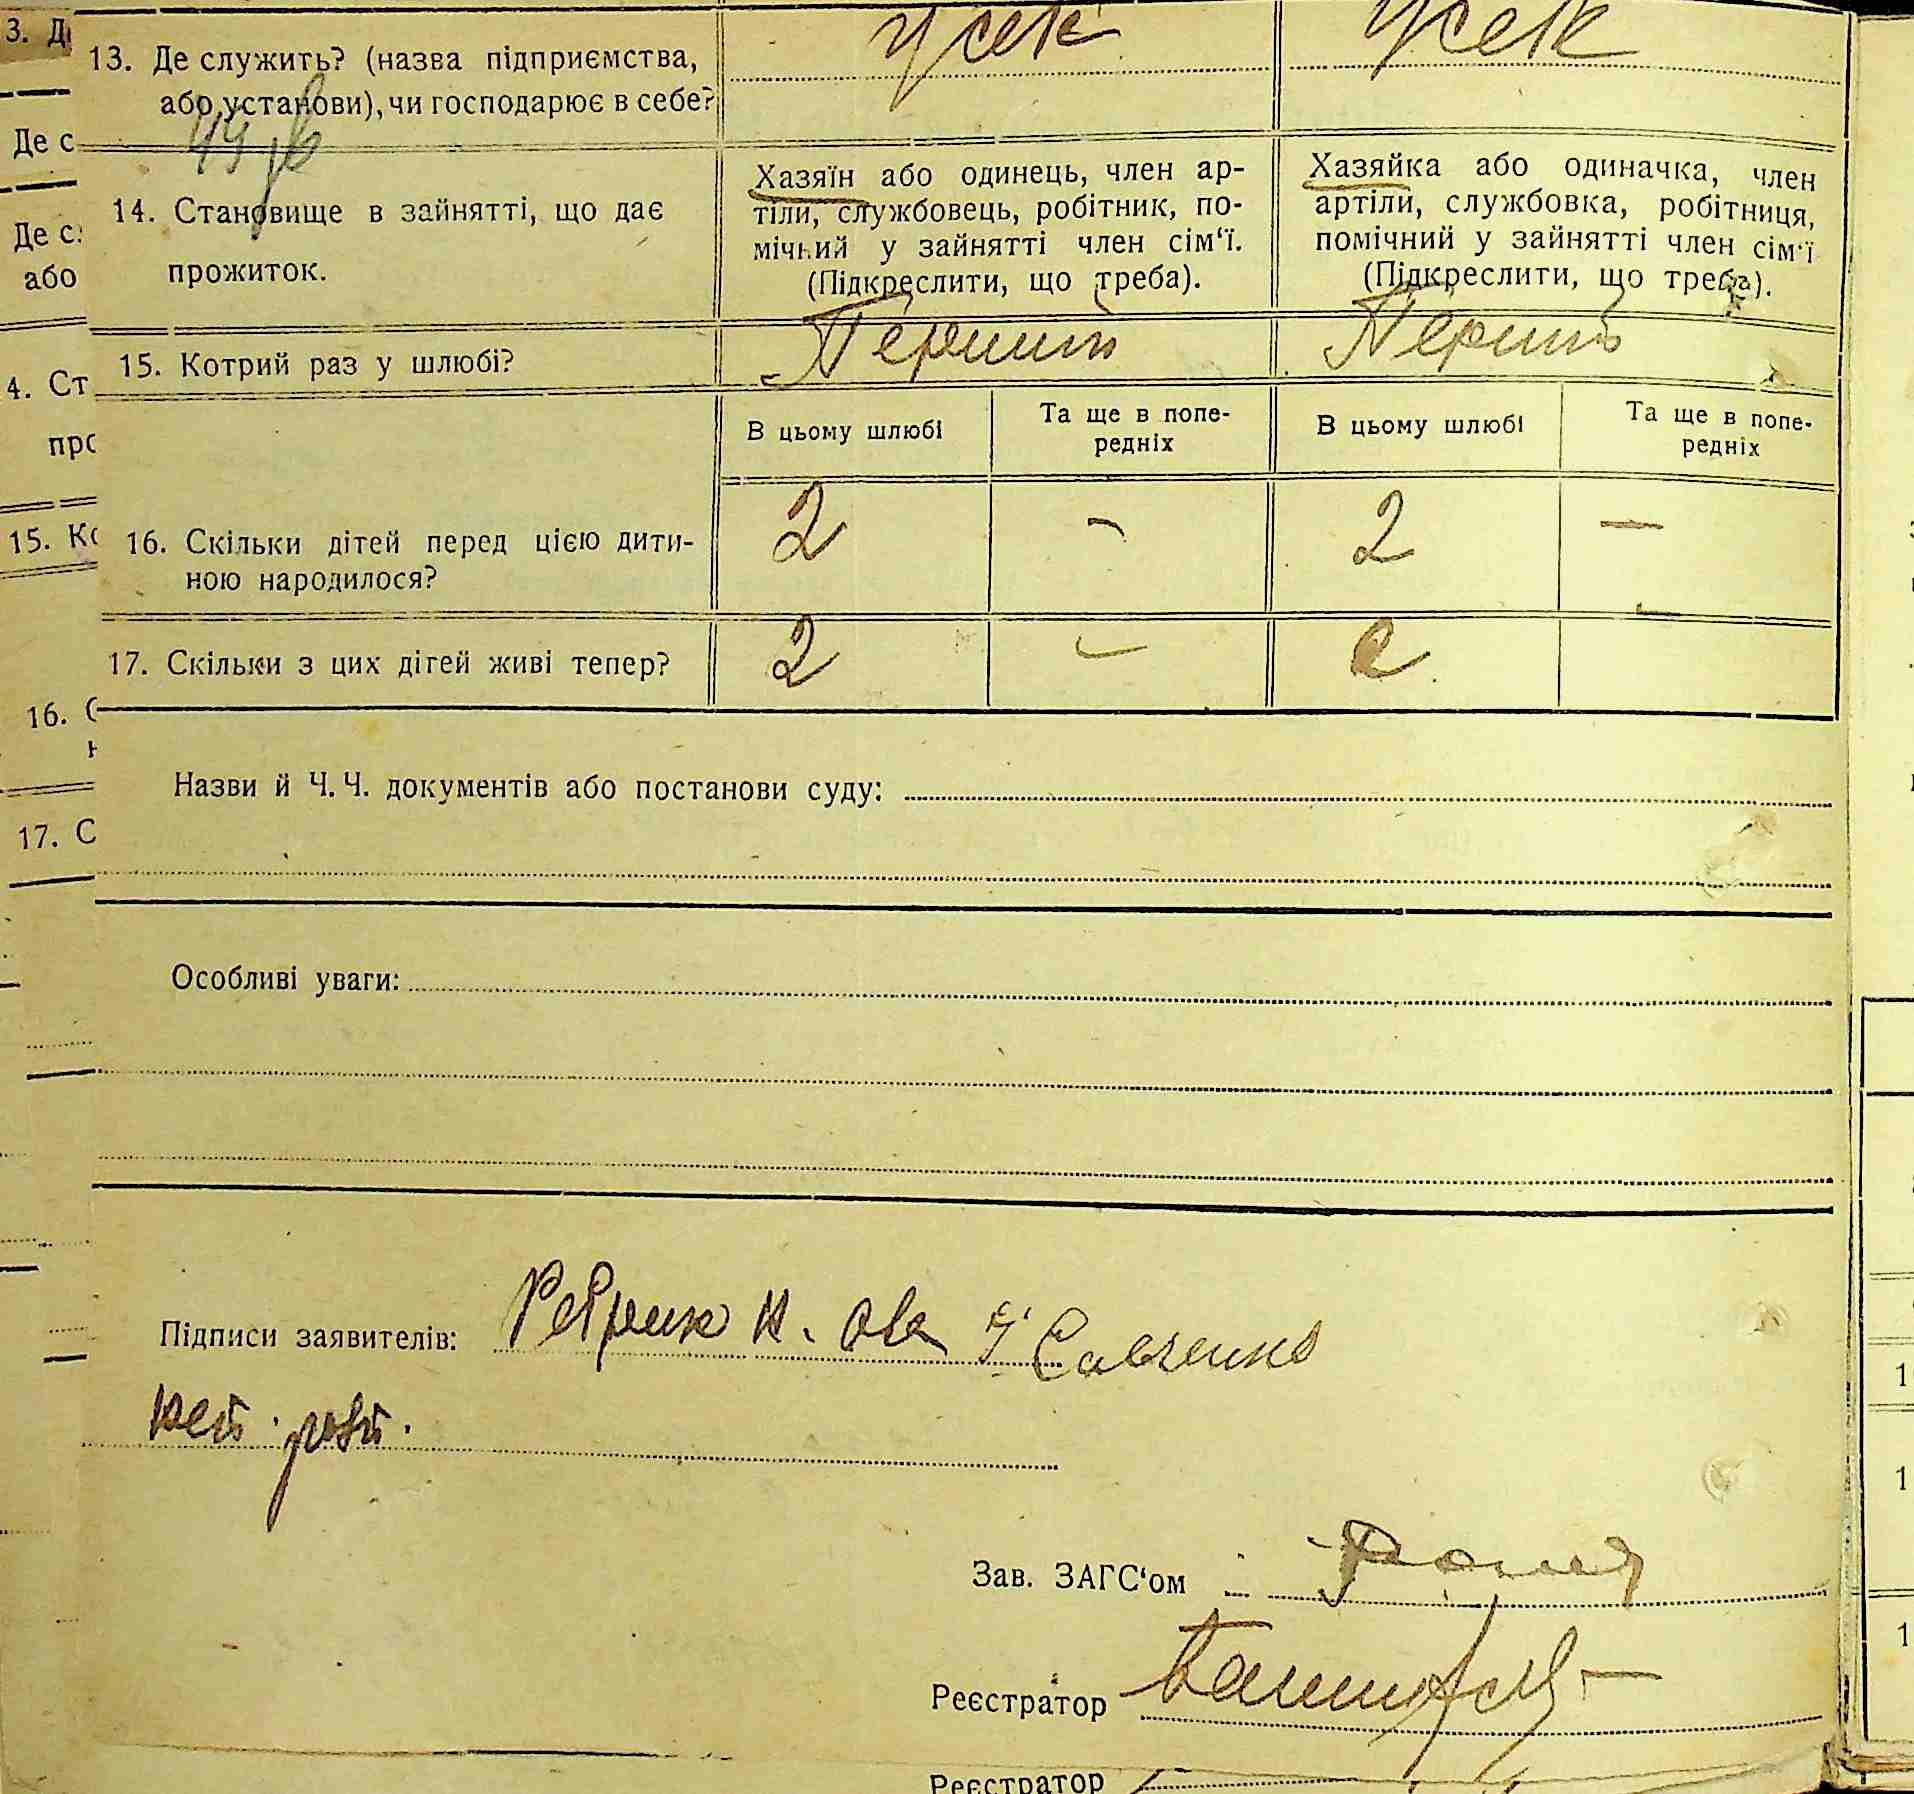 13. Де служить? (назва підприємства,
або установи), чи господарює в себе?
14. Становище в зайнятті, що дає
прожиток.
Хазяїн або одинець, член ар-
тіли, службовець, робітник, по-
мічний у зайнятті член сім‘ї.
(Підкреслити, що треба).
Хазяйка або одиначка, член
артіли, службовка, робітниця,
помічний у зайнятті член сім‘ї
(Підкреслити, що треба).
15. Котрий раз у шлюбі? Перший Перший
В цьому шлюбі
Та ще в попе-
редніх
В цьому шлюбі
Та ще в попе-
редніх
16. Скільки дітей перед цією дити-
ною народилося?
2 - 2 -
17. Скільки з цих дітей живі тепер? 2 -
Назви й Ч. Ч. документів або постанови суду:
Особливі уваги:
Підписи заявителів: Савченко
Зав. ЗАГС‘ом
Реєстратор
Реєстратор
3. Д
Де с
Де с
або
4. Ст
про
15. Ко
16. С
н
17. С